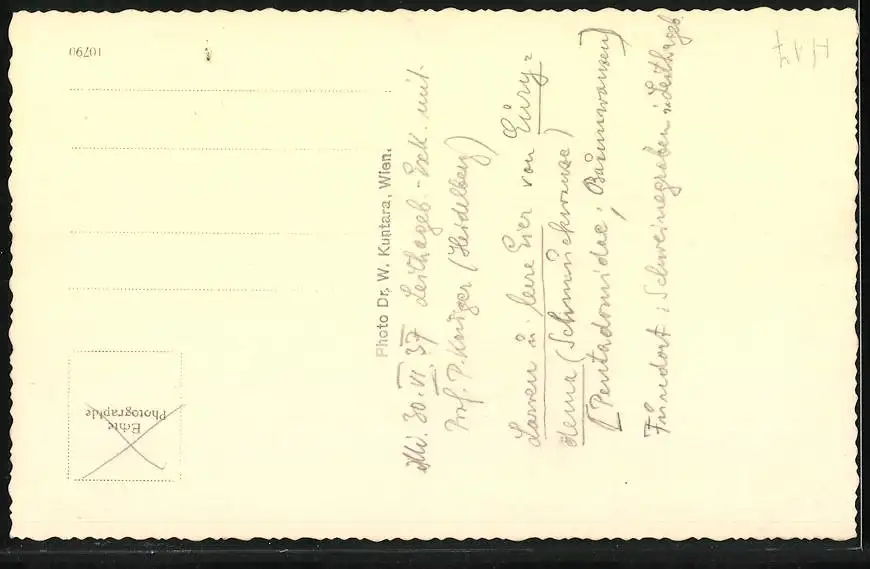 10790
Echte
Photographie
Photo Dr. W. Kuntara, Wien.
Mi. 30. VI. 37 Leithageb.-Exk. mit
Prof. P. Krüger (Heidelberg)
Larven u. leere Eier von Eury=
dema (Schmuckwanze)
[Pentadomidae; Baumwanzen]
Fundort: Schweinegraben i. Leithageb.